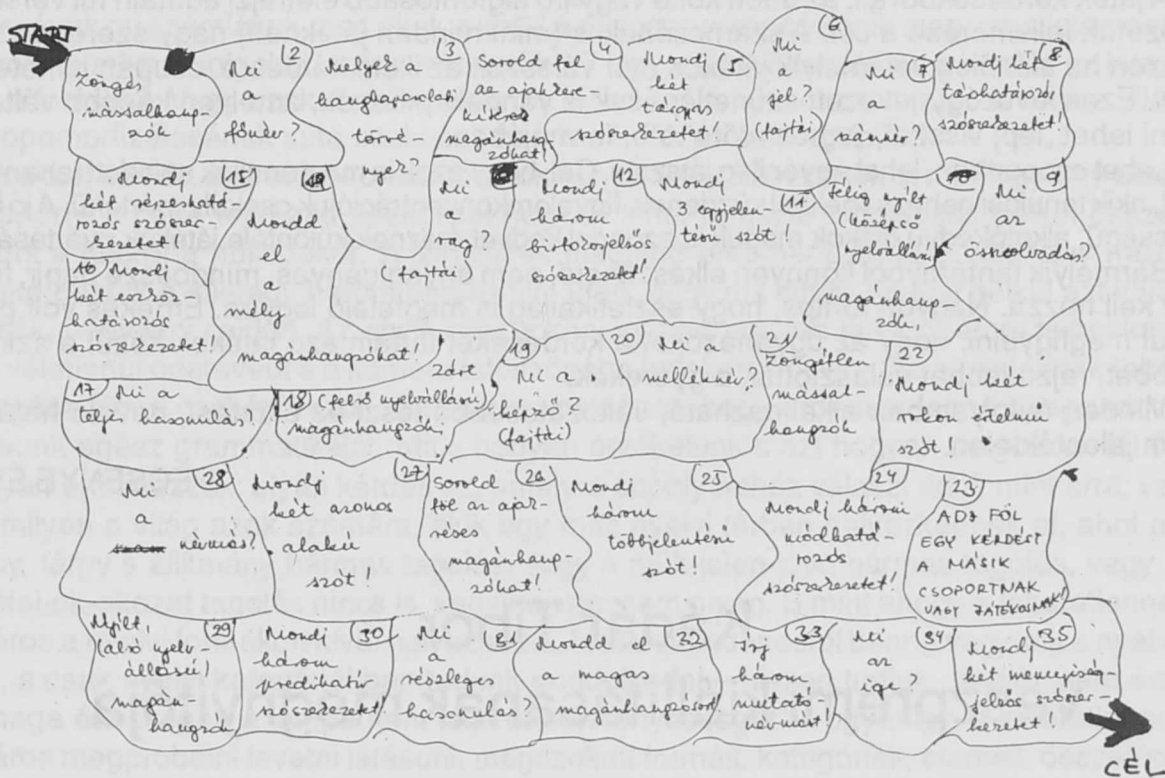 START
Zöngés
mássalhang-
zók
2
Mi
a
főnév?
3
Melyek a
hangkapcsolati
törvé-
nyek?
4
Sorold fel
az ajakkere-
kítéses
magánhang-
zókat!
5
Mondj
két
tárgyas
szószerkezetet!
6
Mi
a
jel?
(fajtái)
7
Mi
a
számnév?
8
Mondj két
tárhatározós
szószerkezetet!
9
Mi
az
összeolvadás?
10
Félig nyílt
(középső
nyelvállású)
magánhang-
zók
11
Mondj
3 egyjelen-
tésű szót!
12
Mondj
három
birtokosjelzős
szószerkezetet!
Mi
a
rag?
(fajtái)
14
Mondd
el
a
mély
magánhangzókat!
15
Mondj
két részesható-
rozós szószer-
kezetet!
16
Mondj
két eszköz-
határozós
szószerkezetet!
17
Mi a
teljes hasonulás?
18
zárt
(felső nyelvállású)
magánhangzók
19
Mi a
képző?
(fajtái)
20
Mi a
melléknév?
21
Zöngétlen
mással-
hangzók
22
Mondj két
rokon értelmű
szót!
23
ADJ FÖL
EGY KÉRDÉST
A MÁSIK
CSOPORTNAK
VAGY JÁTÉKOSNAK!
24
Mondj három
módhatá-
rozós
szószerkezetet!
25
Mondj
három
többjelentésű
szót!
26
27
Sorold
föl az ajk-
réses
magánhang-
zókat!
28
Mondj
két azonos
alakú
szót!
Mi
a
névmás?
29
Nyílt,
(alsó nyelv-
állású)
magán-
hangzók
30
Mondj
három
predikatív
szószerkezetet!
31
Mi
a
részleges
hasonulás?
32
Mondd el
a
magas
magánhangzósort!
33
Írj
három
mutató
névmást!
34
Mi
az
ige?
35
Mondj
két mennyiség-
jelzős
szószer-
kezetet!
CÉL